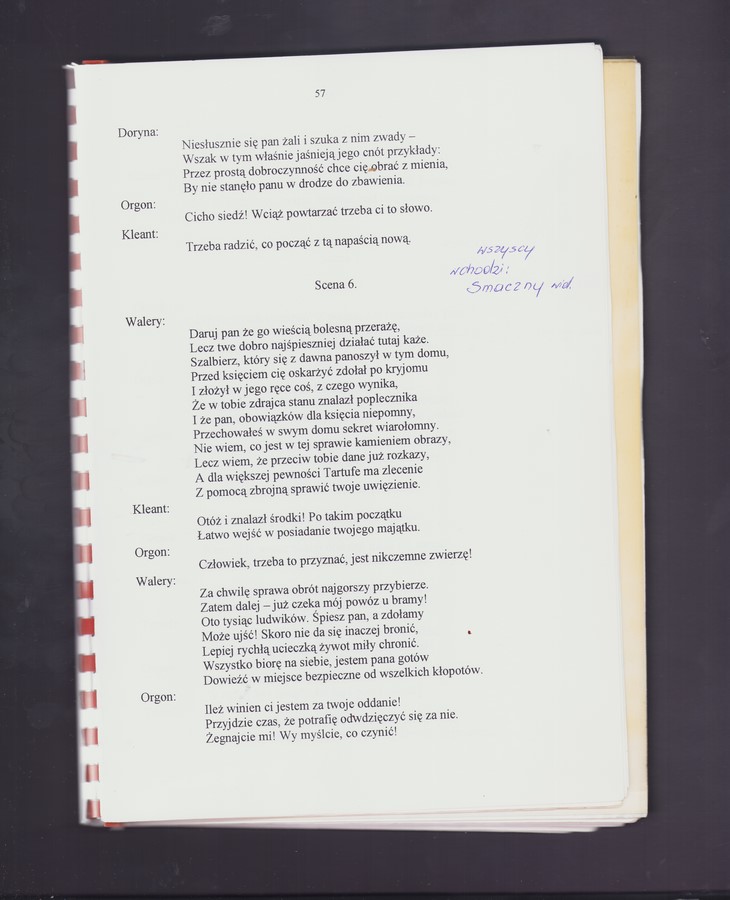 57
Doryna:
Niesłusznie się pan żali i szuka z nim zwady –
Wszak w tym właśnie jaśnieją jego cnót przykłady:
Przez prostą dobroczynność chce cię obrać z mienia,
By nie stanęło panu w drodze do zbawienia.
Orgon:
Cicho siedź! Wciąż powtarzać trzeba ci to słowo.
Kleant:
Trzeba radzić, co począć z tą napaścią nową.
wszyscy
wchodzi:
Smaczny wid.
Scena 6.
Walery:
Daruj pan że go wieścią bolesną przerażę,
Lecz twe dobro najśpieszniej działać tutaj każe.
Szalbierz, który się z dawna panoszył w tym domu,
Przed księciem cię oskarżyć zdołał po kryjomu
I złożył w jego ręce coś, z czego wynika,
Że w tobie zdrajca stanu znalazł poplecznika
I że pan, obowiązków dla księcia niepomny,
Przechowałeś w swym domu sekret wiarołomny.
Nie wiem, co jest w tej sprawie kamieniem obrazy,
Lecz wiem, że przeciw tobie dane już rozkazy,
A dla większej pewności Tartufe ma zlecenie
Z pomocą zbrojną sprawić twoje uwięzienie.
Kleant:
Otóż i znalazł środki! Po takim początku
Łatwo wejść w posiadanie twojego majątku.
Orgon:
Człowiek, trzeba to przyznać, jest nikczemne zwierzę!
Walery:
Za chwilę sprawa obrót najgorszy przybierze.
Zatem dalej – już czeka mój powóz u bramy!
Oto tysiąc ludwików. Śpiesz pan, a zdołamy
Może ujść! Skoro nie da się inaczej bronić,
Lepiej rychłą ucieczką żywot miły chronić.
Wszystko biorę na siebie, jestem pana gotów
Dowieźć w miejsce bezpieczne od wszelkich kłopotów.
Orgon:
Ileż winien ci jestem za twoje oddanie!
Przyjdzie czas, że potrafię odwdzięczyć się za nie.
Żegnajcie mi! Wy myślcie, co czynić!